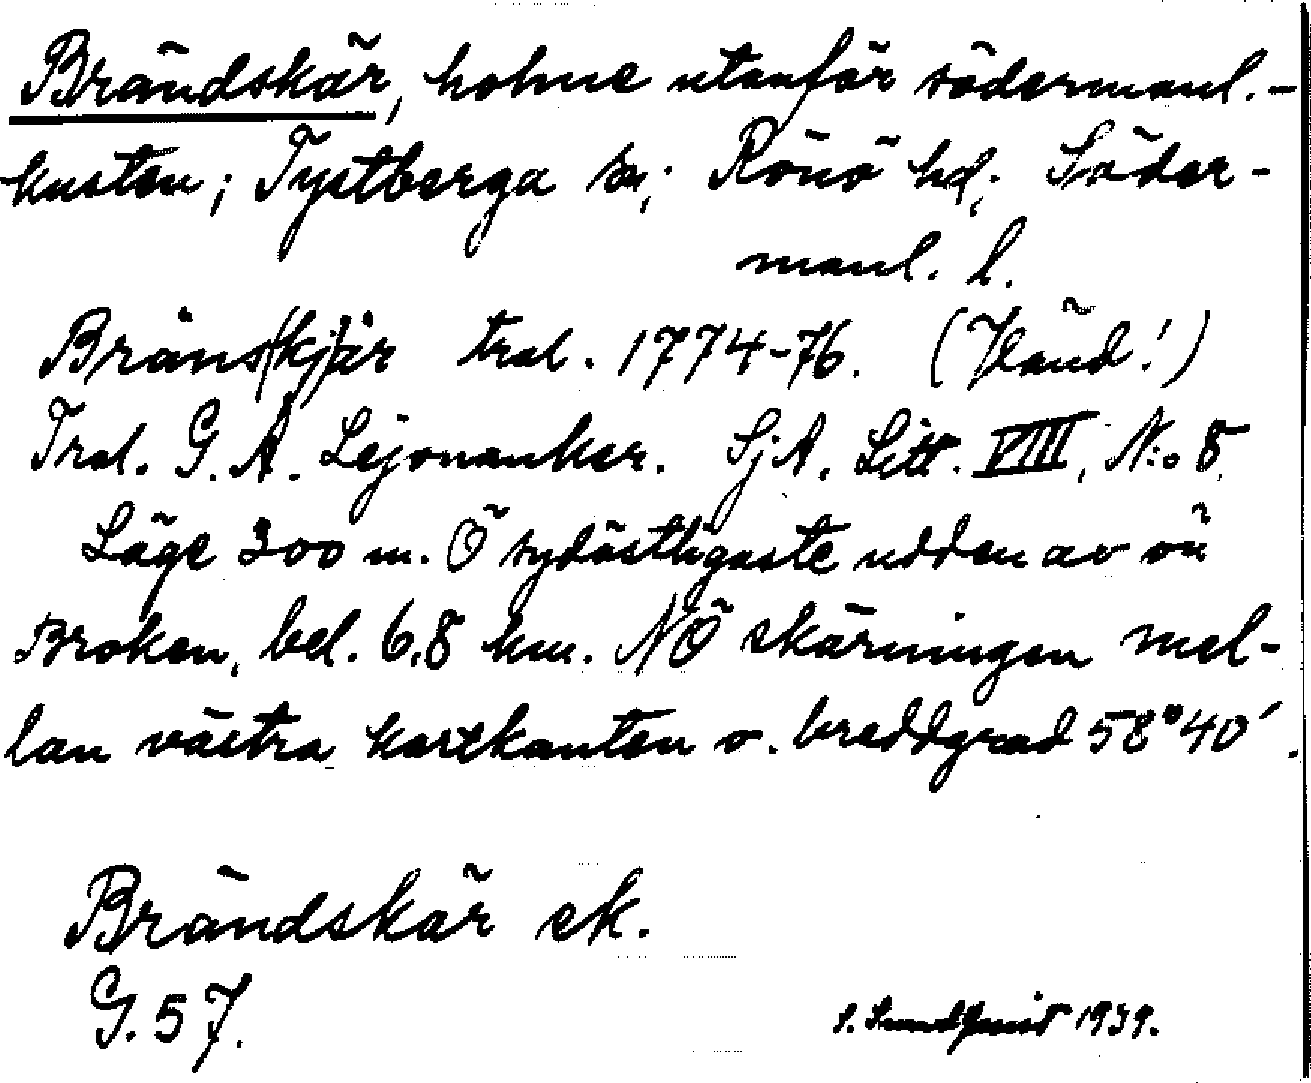 Brändskär, holme utanför södermanl.-
kusten; Tystberga sn; Rönö hd; Söder-
manl. l.
Bräns(kj)är tral. 1774-76. (Händ!)
Tral. G. A. Lejonanker. SjA. Litt. VIII, N:o 8.
Läge 300 m. Ö sydöstligaste udden av ön
Broken, bel. 6,8 km. NÖ skärningen mel-
lan västra kartkanten o. breddgrad 58°40'.
Brändskär ek.
G. 57.
S. Sundquist 1939.